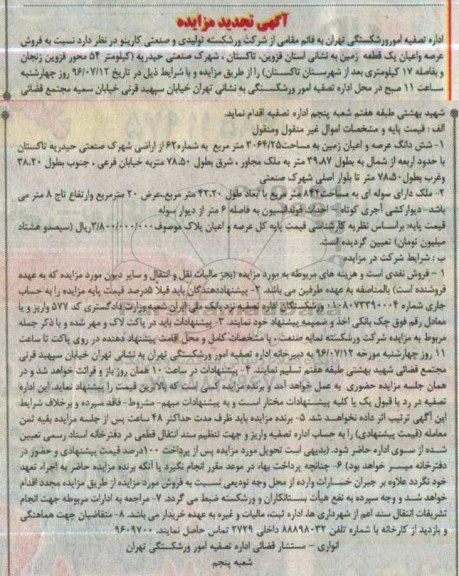 آگهی تجدید مزایده
اداره تصفیه امورورشکستگی تهران به قائم مقامی از شرکت ورشکسته تولیدی و صنعتی کارینو در نظر دارد نسبت به فروش
عرصه واعیان یک قطعه زمین به نشانی استان قزوین، تاکستان، شهرک صنعتی حیدریه (کیلومتر ۵۴ محور قزوین زنجان
و بفاصله ۱۷ کیلومتری بعد از شهرستان تاکستان) را از طریق مزایده و با شرایط ذیل در تاریخ ۹۶/۰۷/۱۲ روز چهارشنبه
ساعت ۱۱ صبح در محل اداره تصفیه امور ورشکستگی به نشانی تهران خیابان سپهبد قرنی خیابان سمیه مجتمع قضائی
شهید بهشتی طبقه هفتم شعبه پنجم اداره تصفیه اقدام نماید.
الف : قیمت پایه و مشخصات اموال غیر منقول ومنقول
۱- شش دانگ عرصه و اعیان زمین به مساحت۳۰۶۴/۲۵ متر مربع به شماره۶۲ از اراضی شهرک صنعتی حیدریه تاکستان
با حدود اربعه از شمال به بطول ۳۹،۸۷ متر به ملک مجاور ، شرق بطول ۷۸،۵۰ متربه خیابان فرعی ، جنوب بطول ۳۸،۲۰
وغرب بطول ۷۸،۵۰ متر تا بلوار اصلی شهرک صنعتی
۲- ملک دارای سوله ای به مساحت۸۴۴ متر مربع با ابعاد طول ۴۲،۲۰ متر مربع،عرض ۲۰ مترمربع وارتفاع تاج ۸ متر می
باشد-دیوارکشی آجری کوتاه- احداث فونداسیون به فاصله ۶ متر از دیوار سوله
قیمت پایه: براساس نظریه کارشناسی قیمت پایه کل عرصه و اعیان پلاک موصوف ۳/۸۰۰/۰۰۰/۰۰۰ریال (سیصدو هشتاد
میلیون تومان) تعیین گردیده است.
ب : شرایط شرکت در مزایده
۱ - فروش نقدی است و هزینه های مربوطه به مورد مزایده (بجز مالیات نقل و انتقال و سایر دیون مورد مزایده که به عهده
فروشنده است) بالمناصفه به عهده طرفین می باشد. ۲- پیشنهاددهندگان باید قبلاً ۵درصد قیمت پایه مزایده را به حساب
جاری شماره ورشکستگان اداره تصفیه نزد بانک ملی ایران شعبه وزارت دادگستری کد ۵۷۷ واریز و یا
معادل رقم فوق چک بانکی اخذ و ضمیمه پیشنهاد خود نمایند. ۳- پیشنهادات باید در پاکت لاک و مهر شده و با ذکر جمله
مربوط به مزایده شرکت ورشکسته تمایه صنعت با مشخصات کامل و محل اقامت پیشنهاد دهنده در روی پاکت تا ساعت
۱۱ روز چهارشنبه مورخه ۹۶/۰۷/۱۲ به دبیرخانه اداره تصفیه امور ورشکستگی تهران به نشانی تهران خیابان سپهبد قرنی
مجتمع قضائی شهید بهشتی طبقه هفتم تسلیم نمایند. ۴- پیشنهادات در ساعت ۱۰ همان روز باز و قرائت خواهد شد و در
همان جلسه مزایده حضوری به عمل خواهد آمد و برنده مزایده کسی است که بالاترین قیمت را پیشنهاد نماید. این اداره
تصفیه در رد یا قبول یک یا کلیه پیشنهادات مختار است و به پیشنهادات مبهم- مشروط - فاقد سپرده و برخلاف شرایط
این آگهی ترتیب اثر داده نخواهد شد. ۵- برنده مزایده باید ظرف مدت حداکثر ۴۸ ساعت پس از جلسه مزایده بقیه ثمن
معامله (قیمت پیشنهادی) را به حساب اداره تصفیه واریز و جهت تنظیم سند انتقال قطعی در دفترخانه اسناد رسمی تعیین
شده از سوی اداره حاضر شود. (بدیهی است تحویل مورد مزایده پس از پرداخت ۱۰۰درصد قیمت پیشنهادی و حضور در
دفترخانه میسر خواهد بود) ۶- چنانچه پرداخت بهاء در موعد مقرر انجام نگیرد یا آنکه برنده مزایده حاضر به اجراء تعهد
خود نگردد علاوه بر جبران خسارات وارده از محل وجه تودیعی نسبت به فروش مورد مزایده از طریق مزایده مجدد اقدام
خواهد شد و وجه سپرده به نفع هیأت بستانکاران و ورشکسته ضبط می گردد. ۷- مراجعه به ادارات مربوطه جهت انجام
تشریفات انتقال سند اعم از شهرداری ها، اداره ثبت، مالیات و غیره به عهده خریدار می باشد. ۸- متقاضیان جهت هماهنگی
و بازدید از کارخانه با شماره تلفن ۸۸۸۹۸۰۳۲ داخلی ۲۷۲۹ تماس حاصل نمایند. ۹۶۰۹۷۰۰
انواری - مستشار قضائی اداره تصفیه امور ورشکستگی تهران
شعبه پنجم